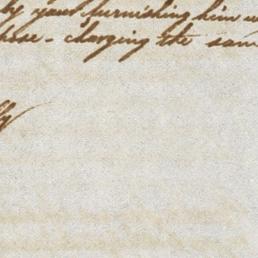 by your furnishing him
hose - charging the sam